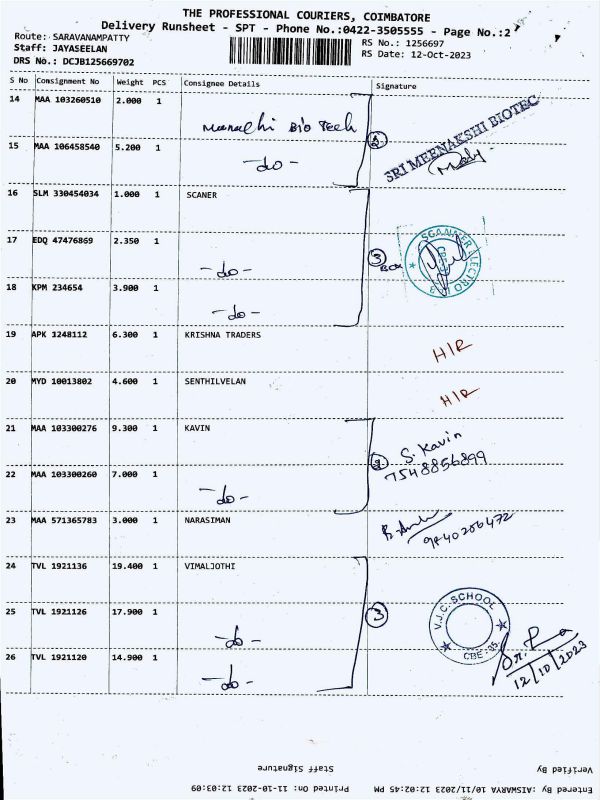 THE PROFESSIONAL COURIERS, COIMBATORE
Delivery Runsheet - SPT - Phone No.:0422-3505555 - Page No.:2
Route: SARAVANAMPATTY
RS No.: 1256697
Staff: JAYASEELAN
RS Date: 12-Oct-2023
DRS No.: DCJB125669702
S No Consignment No Weight PCS Consignee Details Signature
14 MAA 103260510 2.000 1
Meenachi Bio Tech
2 SRI MEENAKSHI BIOTEC
15 MAA 106458540 5.200 1
-do-
16 SLM 330454034 1.000 1 SCANER
17 EDQ 47476869 2.350 1
-do-
3 BOX
SCANNER ELECTRO
18 KPM 234654 3.900 1
-do-
19 APK 1248112 6.300 1 KRISHNA TRADERS
H/R
20 MYD 10013802 4.600 1 SENTHILVELAN
H/R
21 MAA 103300276 9.300 1 KAVIN
2 S. Kavin
7548856899
22 MAA 103300260 7.000 1
-do-
23 MAA 571365783 3.000 1 NARASIMAN
9840256472
24 TVL 1921136 19.400 1 VIMALJOTHI
25 TVL 1921126 17.900 1
-do-
3 V.J.C. SCHOOL
CBE-35.
26 TVL 1921120 14.900 1
-do-
12/10/2023
Staff Signature
Verified By
Printed On: 11-10-2023 12:03:09
Entered By :AISWARYA 10/11/2023 12:02:45 PM